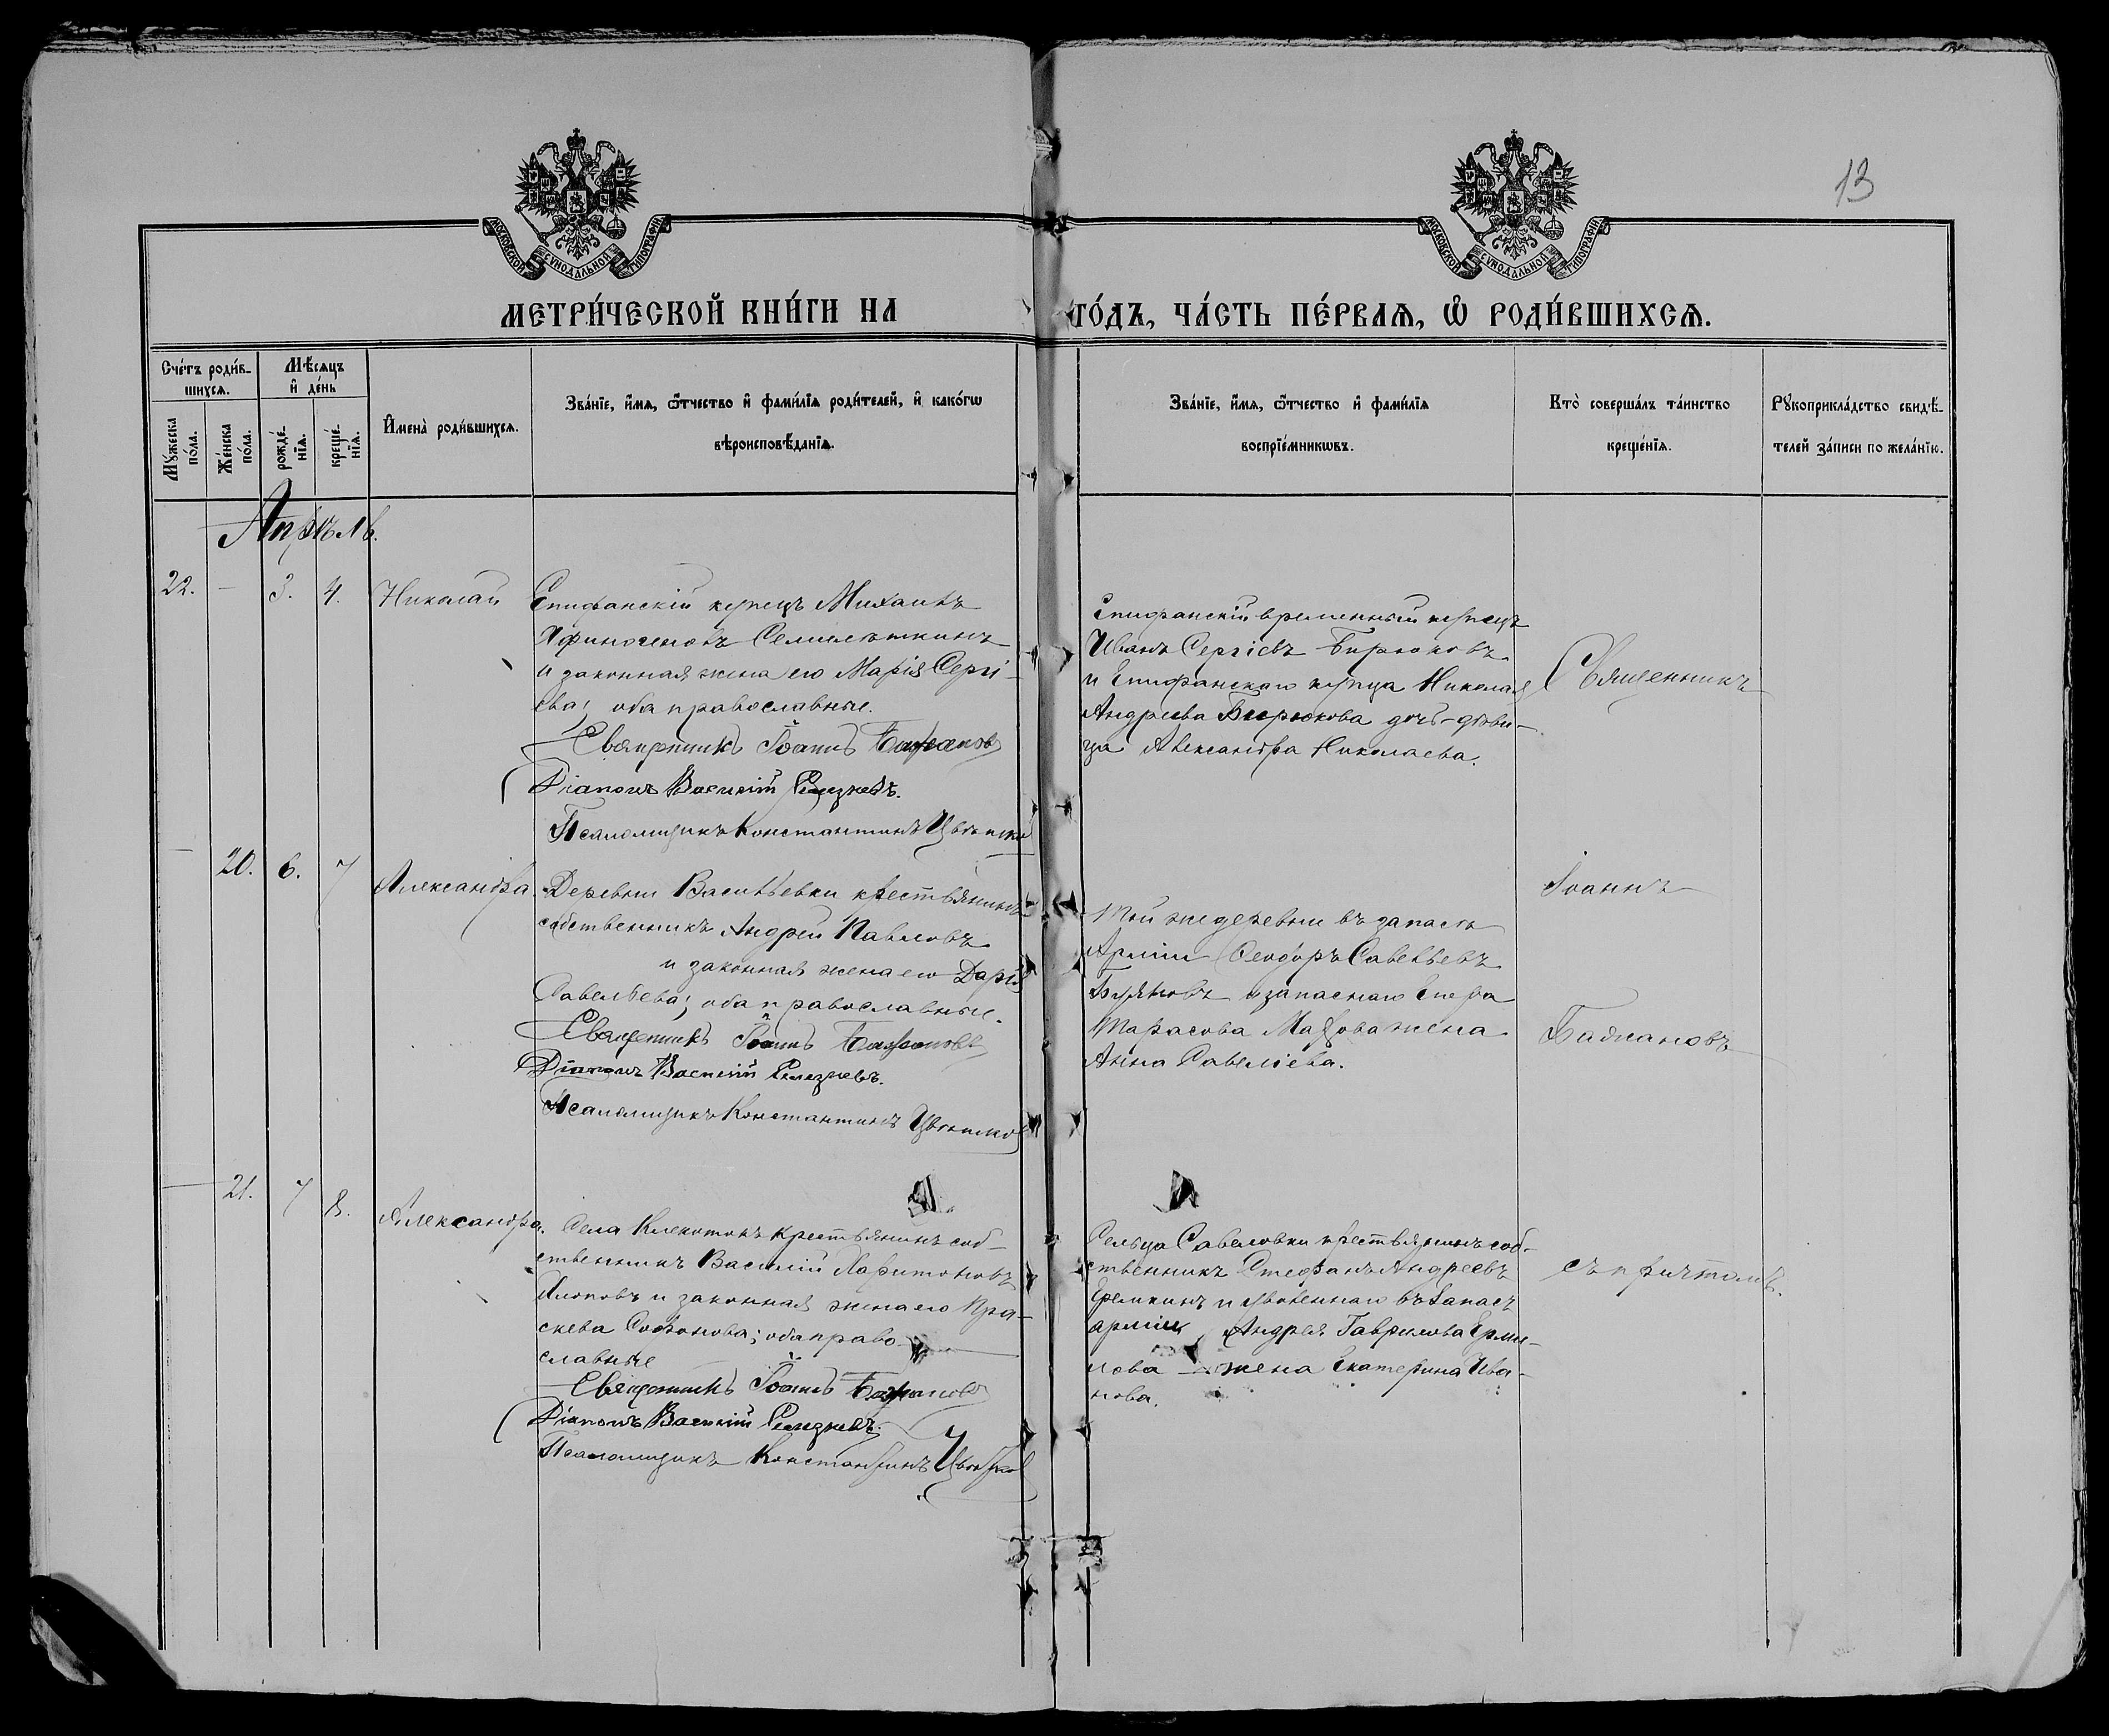 13
МОСКОВСКОЙ СѴНОДАЛЬНОЙ ТИПОГРАФІИ
МОСКОВСКОЙ СѴНОДАЛЬНОЙ ТИПОГРАФІИ
МЕТРИ́ЧЕСКОЙ КНИ́ГИ НА ГО́ДЪ, ЧА́СТЬ ПЕ́РВАѦ, Ѡ РОДИ́ВШИХСѦ.
Сче́тъ роди́в-
шихсѧ.
Мѣ́сѧцъ
и҆ де́нь
Мꙋ́жеска
по́ла.
Же́нска
по́ла.
рожде́-
нїѧ.
креще́-
нїѧ.
И҆мена̀ роди́вшихсѧ.
Зва́нїе, и҆́мѧ, ѻ҆́тчество и҆ фами́лїѧ роди́телей, и҆ како́гѡ
вѣроисповѣ́данїѧ.
Зва́нїе, и҆́мѧ, ѻ҆́тчество и҆ фами́лїѧ
воспрїе́мникѡвъ.
Кто̀ соверша́лъ та́инство
креще́нїѧ.
Рꙋкоприкла́дство свидѣ́-
телей за́писи по жела́нїю.
Апрѣль.
22. — 3. 4. Николай
Епифанскій купецъ Михаилъ
Афиногеновъ Семилѣткинъ
и законная жена его Марія Сергі-
ева; оба православные.
Священникъ Іоаннъ Бажановъ
Діаконъ Василій Селезневъ.
Псаломщикъ Константинъ Цвѣтков
Епифанскій временный купецъ
Иванъ Сергіевъ Бирюковъ
и Епифанскаго купца Николая
Андреева Бирюкова дочь-дѣви-
ца Александра Николаева.
Священникъ
— 20. 6. 7 Александра
Деревни Васильевки крестьянинъ
собственникъ Андрей Павловъ
и законная жена его Дарія
Савельева; оба православные.
Священникъ Іоаннъ Бажановъ
Діаконъ Василій Селезневъ.
Псаломщикъ Константинъ Цвѣтков
Той же деревни въ запасѣ
Арміи Ѳеодоръ Савельевъ
и запаснаго
Тарасова жена
Анна Савельева.
Іоаннъ
Бажановъ
— 21. 7 8. Александра.
Села Клекотокъ крестьянинъ соб-
ственникъ Василій Харитоновъ
и законная жена его Пра-
скева Софонова; оба право-
славные
Священникъ Іоаннъ Бажановъ
Діаконъ Василій Селезневъ.
Псаломщикъ Константинъ Цвѣтков
Сельца Савеловки крестьянинъ соб-
ственникъ Стефанъ Андреевъ
Еремкинъ и уволеннаго въ запасъ
арміи Андрея Гаврилова Ерми-
лова жена Екатерина Ива-
нова.
съ причтомъ.